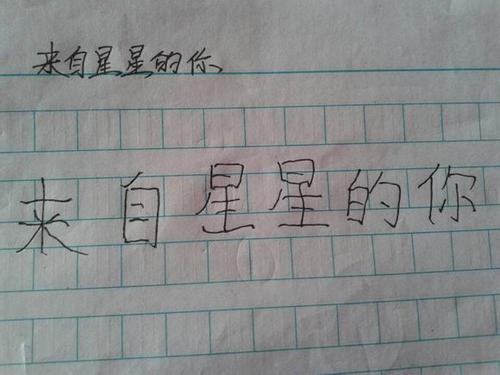 来自星星的你
来自星星的你